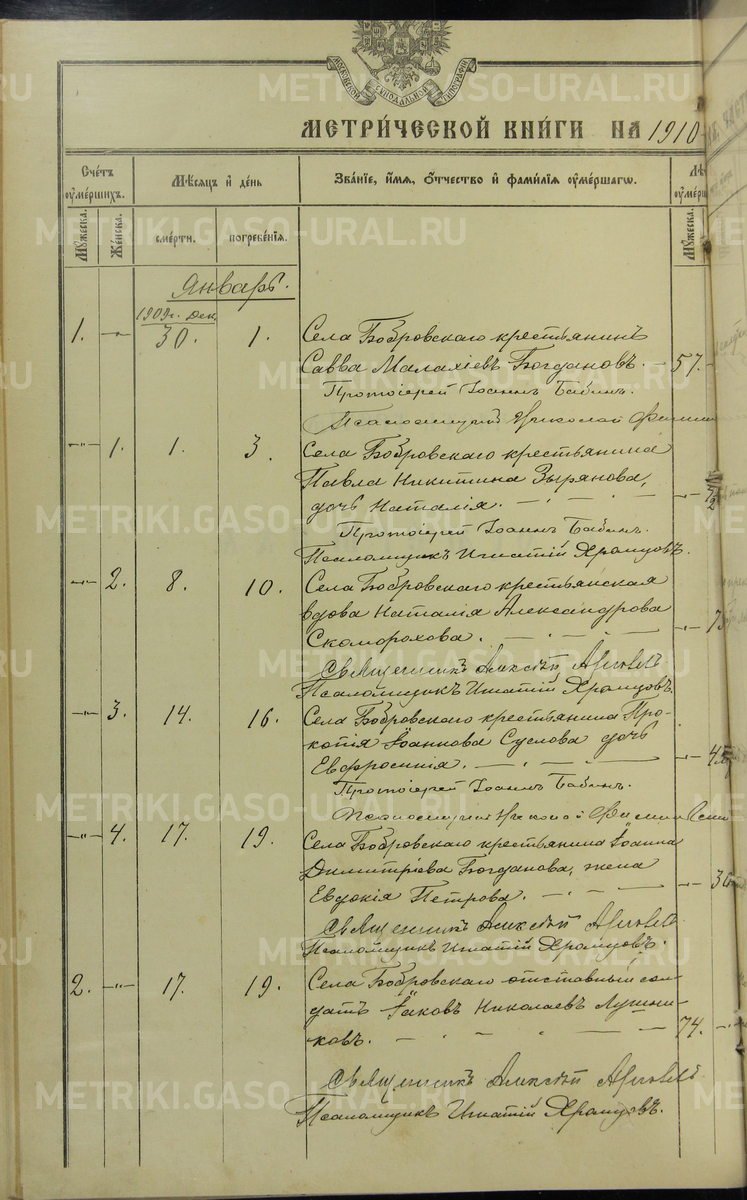 МОСКОВСКОЙ СѴНОДАЛЬНОЙ ТИПОГРАФІИ
METRIKI.GASO-URAL.RU
МЕТРИ́ЧЕСКОЙ КНИ́ГИ НА 1910
Сче́тъ ᲂу҆ме́ршихъ.
Мѣ́сяцъ и҆ де́нь
Зва́нїе, и҆́мя, ѻ҆́тчество и҆ фами́лїя ᲂу҆ме́ршагѡ.
Мꙋ́жеска.
Же́нска.
сме́рти.
погребе́нїя.
Мꙋ́жеска
Январь.
1909г. Дек.
1. —"— 30. 1. Села Бобровскаго крестьянинъ
Савва Малахіевъ Богдановъ. — 57. —
Протоіерей Іоаннъ Бабинъ.
Псаломщикъ Николай
—"— 1. 1. 3. Села Бобровскаго крестьянина
Павла Никитина Зырянова,
дочь Наталія.
Протоіерей Іоаннъ Бабинъ.
Псаломщикъ Игнатій Храмцовъ.
—"— 2. 8. 10. Села Бобровскаго крестьянская
вдова Наталія Александрова
Скоморохова.
Священникъ Алексѣй
Псаломщикъ Игнатій Храмцовъ.
—"— 3. 14. 16. Села Бобровскаго крестьянина Про-
копія Іоаннова Суслова дочь
Евфросинія.
Протоіерей Іоаннъ Бабинъ.
Псаломщикъ Николай
—"— 4. 17. 19. Села Бобровскаго крестьянина Іоанна
Димитріева Богданова, жена
Евдокія Петрова.
Священникъ Алексѣй
Псаломщикъ Игнатій Храмцовъ.
2. —"— 17. 19. Села Бобровскаго отставный сол-
датъ Іаковъ Николаевъ Лушни-
ковъ. — 74. —
Священникъ Алексѣй
Псаломщикъ Игнатій Храмцовъ.